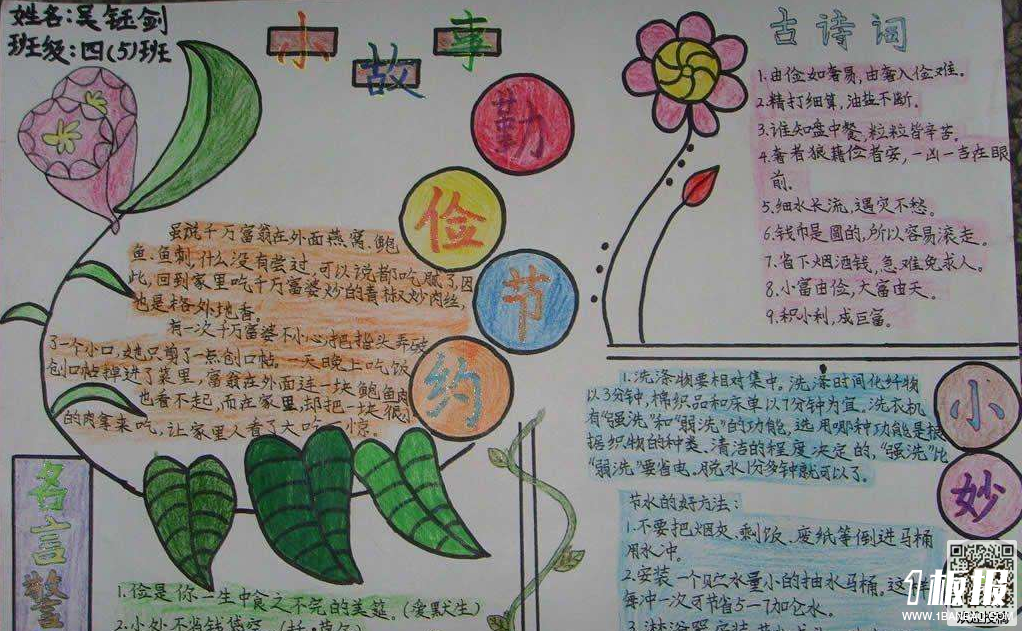 姓名:吴钰剑
班级:四(5)班
小故事
勤俭节约
虽说千万富翁在外面燕窝、鲍
鱼、鱼刺,什么没有尝过,可以说都吃腻了,因
此,回到家里吃千万富婆炒的青椒炒肉丝,
也是格外地香。
有一次千万富婆不小心把指头弄破
了一个小口,她只剪了一点创口帖。一天晚上吃饭
创口帖掉进了菜里,富翁在外面连一块鲍鱼肉
也看不起,而在家里,却把一块很小
的肉拿来吃,让家里人看了大吃一惊。
古诗词
1.由俭如奢易,由奢入俭难。
2.精打细算,油盐不断。
3.谁知盘中餐,粒粒皆辛苦。
4.奢者狼藉俭者安,一凶一吉在眼
前。
5.细水长流,遇灾不愁。
6.钱币是圆的,所以容易滚走。
7.省下烟酒钱,急难免求人。
8.小富由俭,大富由天。
9.积小利,成巨富。
小妙
1.洗涤物要相对集中。洗涤时间化纤物
以3分钟,棉织品和床单以7分钟为宜。洗衣机
有“强洗”和“弱洗”的功能,选用哪种功能是根
据织物的种类、清洁的程度决定的,“强洗”比
“弱洗”要省电、脱水1分多钟就可以了。
节水的好方法:
1.不要把烟灰、剩饭、废纸等倒进马桶
用水冲。
2.安装一个贮水量小的抽水马桶,这
每冲一次可节省5—7加仑水。
名言警
1.俭是你一生中食之不完的美筵。(爱默生)
1板报
WWW.1BANBAO.COM